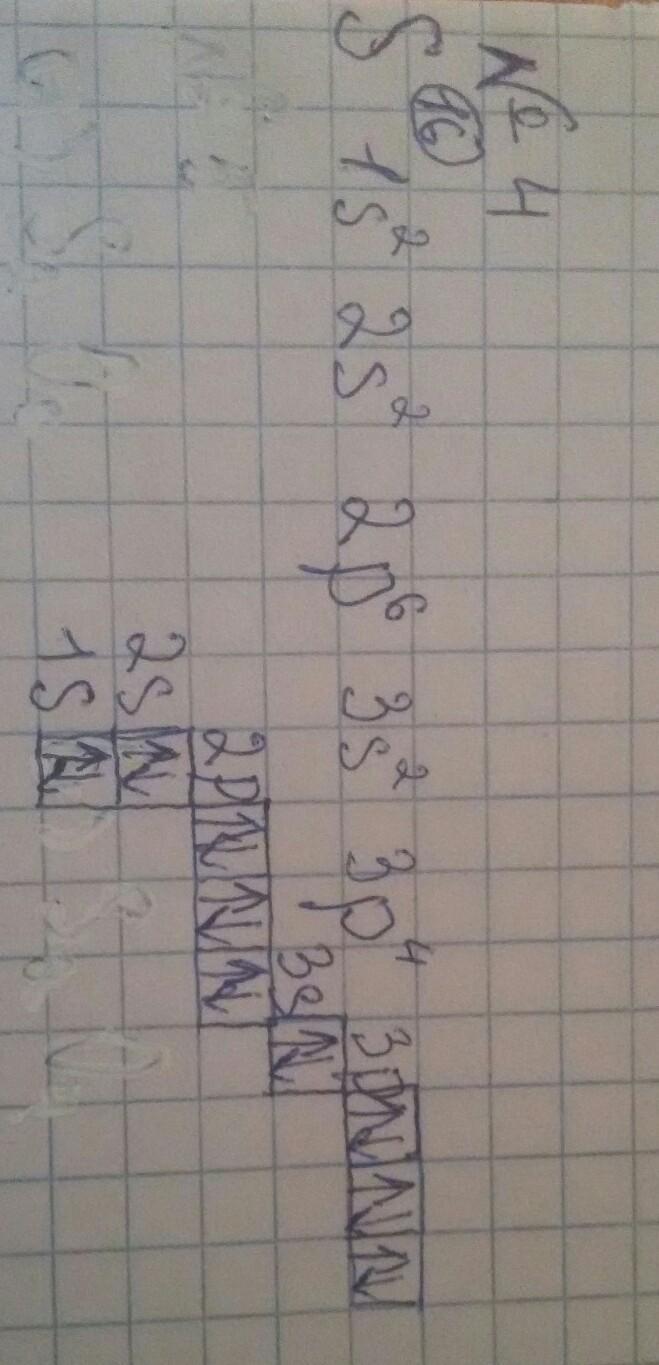 № 4
S (16) 1s² 2s² 2p⁶ 3s² 3p⁴
3p ↑↓ ↑↓ ↑↓
3s ↑↓
2p ↑↓ ↑↓ ↑↓
2s ↑↓
1s ↑↓